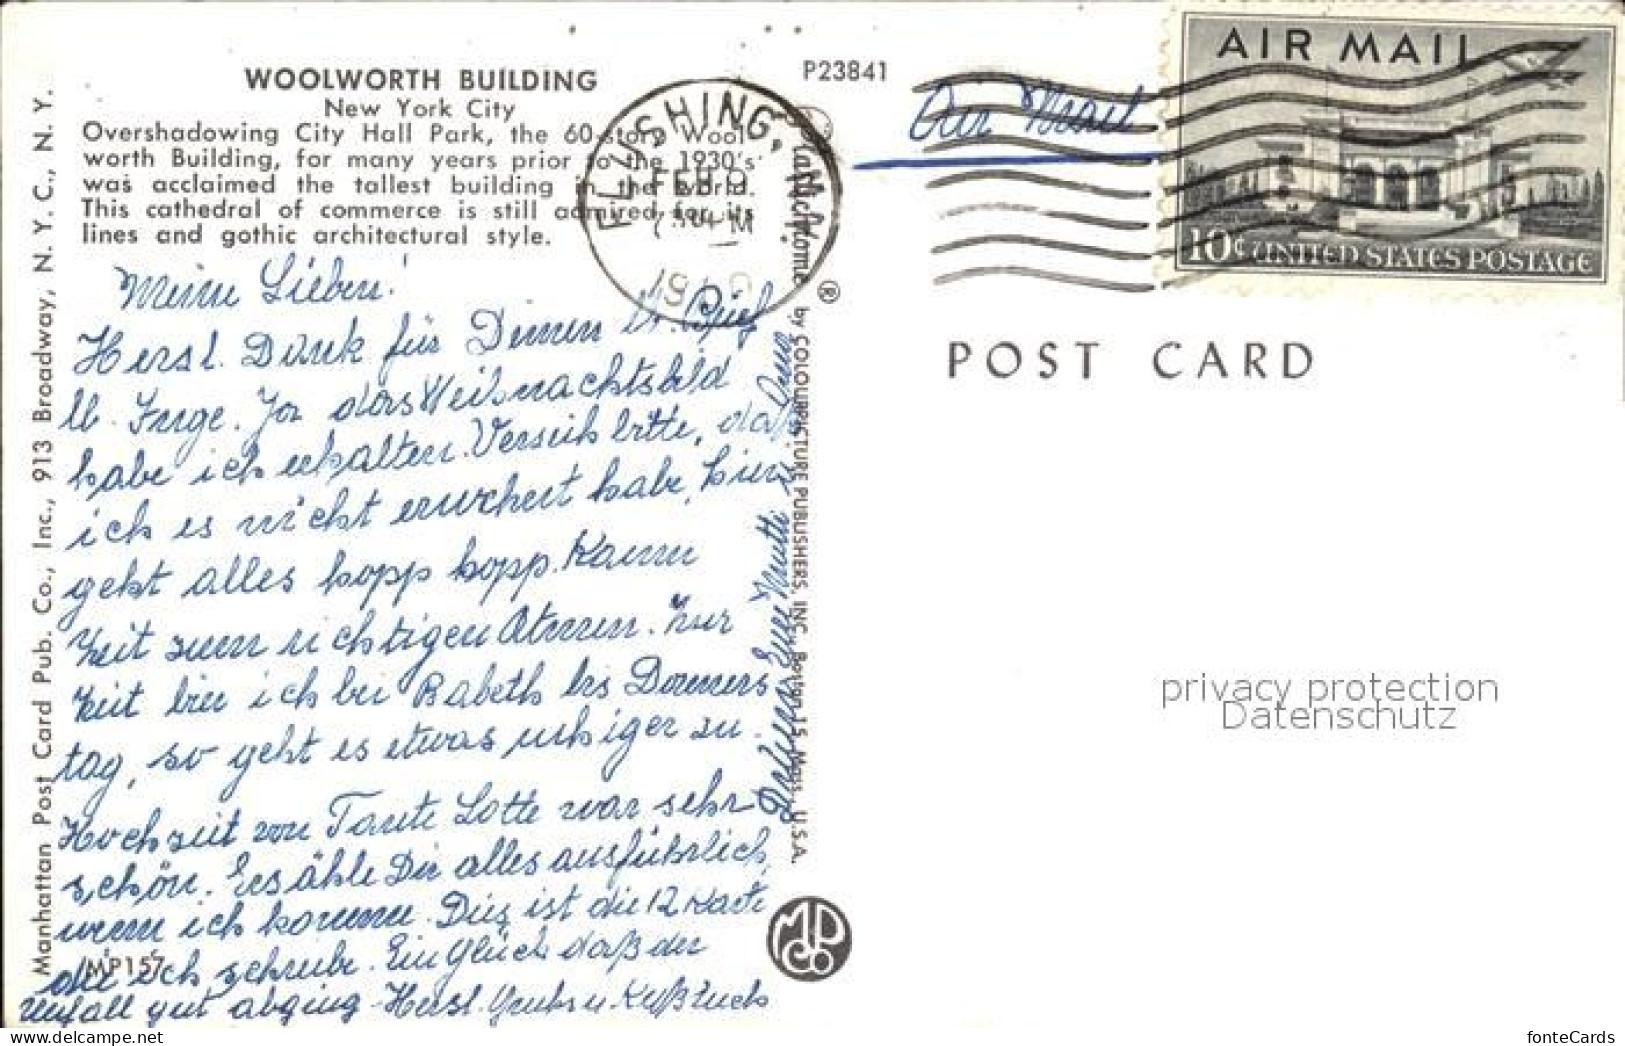 WOOLWORTH BUILDING
New York City
Overshadowing City Hall Park, the 60-story Wool-
worth Building, for many years prior to the 1930's
was acclaimed the tallest building in the world.
This cathedral of commerce is still admired for its
lines and gothic architectural style.
P23841
FLUSHING,
FEB 9
Air Mail
AIR MAIL
10¢ UNITED STATES POSTAGE
POST CARD
Meine Lieben!
Herzl. Dank für Deinen lb. Brief
lb. Inge. Ja das Weihnachtsbild
habe ich erhalten. Verzeih bitte, daß
ich es nicht erwehert habe, hier
geht alles hopp hopp. Kaum
Zeit zum richtigen Atmen. Zur
Zeit bin ich bei Babeth bis Donners
tag, so geht es etwas ruhiger zu.
Hochzeit von Tante Lotte war sehr
schön. Erzähle Dir alles ausführlich,
wenn ich komme. Dies ist die 12 Karte
die ich schreibe. Ein Glück daß der
Unfall gut abging - Herzl. Gruß u. Kuß
Eure Mutti
Manhattan Post Card Pub. Co., Inc., 913 Broadway, N. Y. C., N. Y.
MP157
Natural Color Made by Dexter
® by COLOURPICTURE PUBLISHERS, INC. Boston 15, Mass., U.S.A.
MPCo
privacy protection
Datenschutz
fonteCards